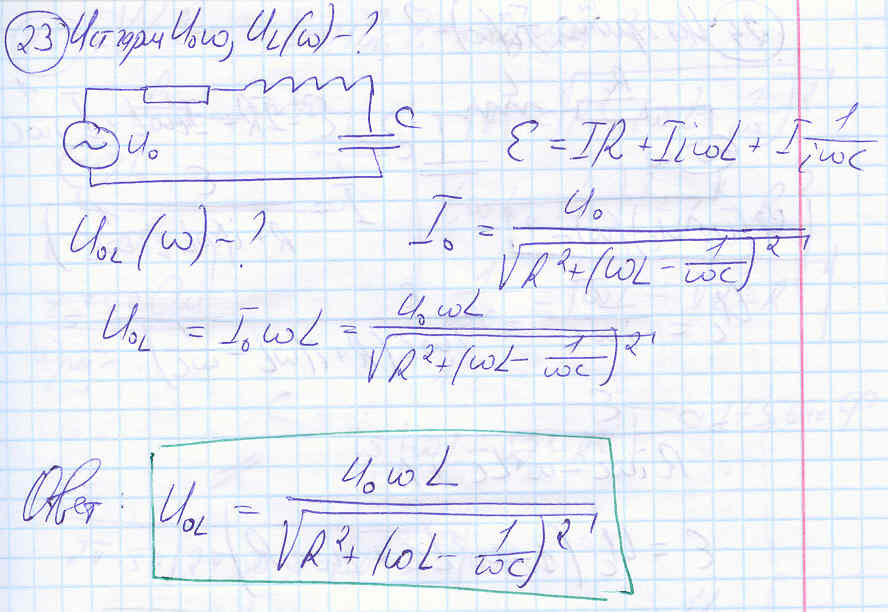 23 Ист гарм U₀ω, U_L(ω) - ?
C
U₀
ℰ = IR + IiωL + I 1/(iωC)
U₀L (ω) - ?
I₀ = U₀/√(R² + (ωL - 1/(ωC))²)
U₀L = I₀ωL = U₀ωL/√(R² + (ωL - 1/(ωC))²)
Ответ: U₀L = U₀ωL/√(R² + (ωL - 1/(ωC))²)